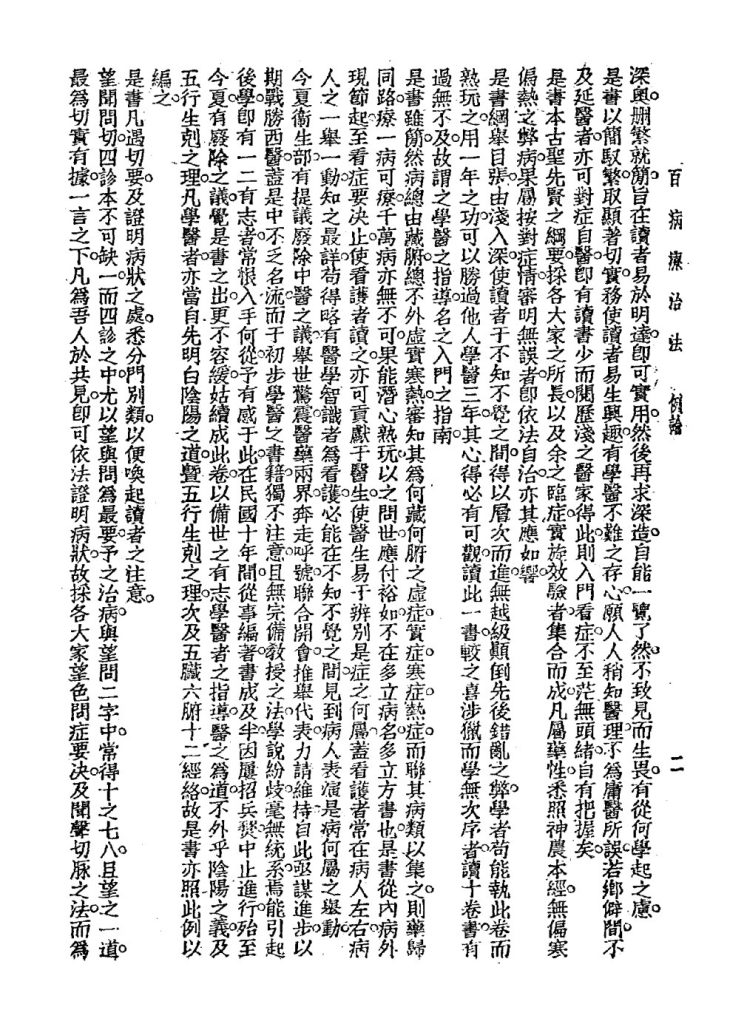 百病療治法　例論　二
深奧删繁就簡旨在讀者易於明達即可實用然後再求深造自能一覽了然不致見而生畏有從何學起之慮。
是書以簡馭繁取顯著切實務使讀者易生興趣有學醫不難之存心願人人稍知醫理不爲庸醫所誤若鄉僻間不
及延醫者亦可對症自醫即有讀書少而閱歷淺之醫家得此則入門看症不至茫無頭緒自有把握矣
是書本古聖先賢之綱要採各大家之所長以及余之臨症實施效驗者集合而成凡屬藥性悉照神農本經無偏寒
偏熱之弊病果屬按對症情審明無誤者即依法自治亦其應如響
是書綱舉目張由淺入深使讀者于不知不覺之間得以層次而進無越級顚倒先後錯亂之弊學者苟能執此卷而
熟玩之用一年之功可以勝過他人學醫三年其心得必有可觀讀此一書較之喜涉獵而學無次序者讀十卷書有
過無不及故謂之學醫之指導名之入門之指南
是書雖簡然病總由藏腑總不外虛實寒熱審知其爲何藏何腑之虛症實症寒症熱症而聯其病類以集之則藥歸
同路療一病可療千萬病亦無不可果能潛心熟玩以之問世應付裕如不在多立病名多立方書也是書從內病外
現節起至看症要決止使看護者讀之亦可貢獻于醫生使醫生易于辨別是症之何屬蓋看護者常在病人左右病
人之一舉一動知之最詳苟得略有醫學智識者爲看護必能在不知不覺之間見到病人表演是病何屬之舉動
今夏衞生部有提議廢除中醫之議舉世驚震醫藥兩界奔走呼號聯合開會推舉代表力請維持自此亟謀進步以
期戰勝西醫蓋是中不乏名流而于初步學醫之書籍獨不注意且無完備教授之法學說紛歧毫無統系焉能引起
後學即有一二有志者常恨入手何從予有感于此在民國十年間從事編著書成及半因屢招兵燹中止進行殆至
今夏有廢除之議覺是書之出更不容緩姑續成此卷以備世之有志學醫者之指導醫之爲道不外乎陰陽之義及
五行生剋之理凡學醫者亦當自先明白陰陽之道曁五行生剋之理次及五臟六腑十二經絡故是書亦照此例以
編之。
是書凡遇切要及證明病狀之處悉分門別類以便喚起讀者之注意。
望聞問切四診本不可缺一而四診之中尤以望與問爲最要予之治病與望問二字中常得十之七八且望之一道
最爲切實有據一言之下凡爲吾人於共見即可依法證明病狀故採各大家望色問症要決及聞聲切脉之法而爲